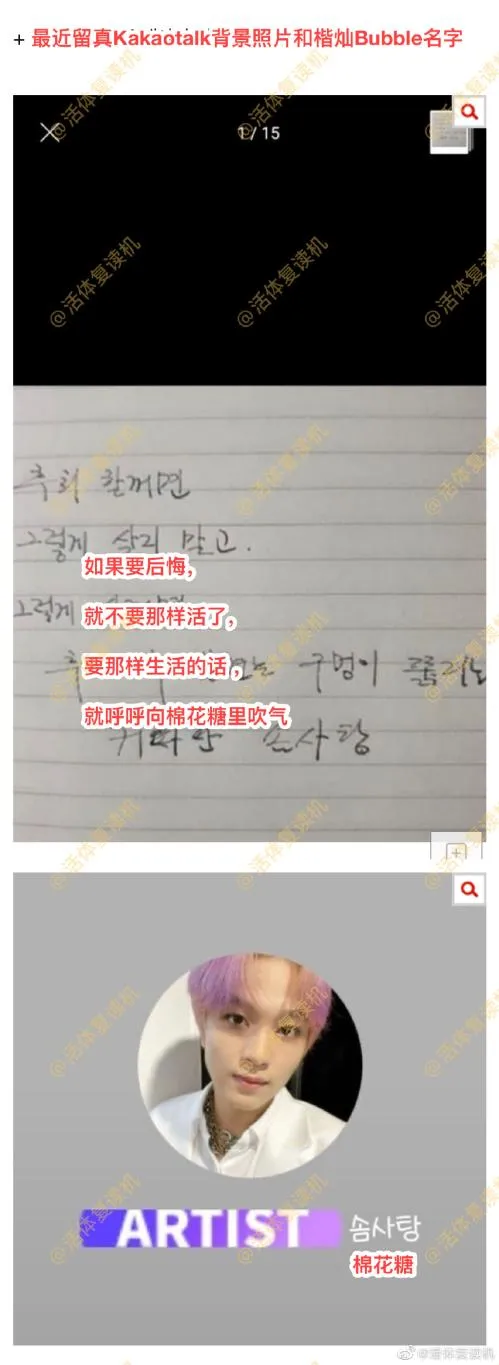 + 最近留真Kakaotalk背景照片和楷灿Bubble名字
1 / 15
후회 할꺼면
그렇게 살지 말고.
如果要后悔，
그렇게
就不要那样活了，
要那样生活的话，
구멍이 뚫리는
就呼呼向棉花糖里吹气
솜사탕
ARTIST 솜사탕
棉花糖
@活体复读机